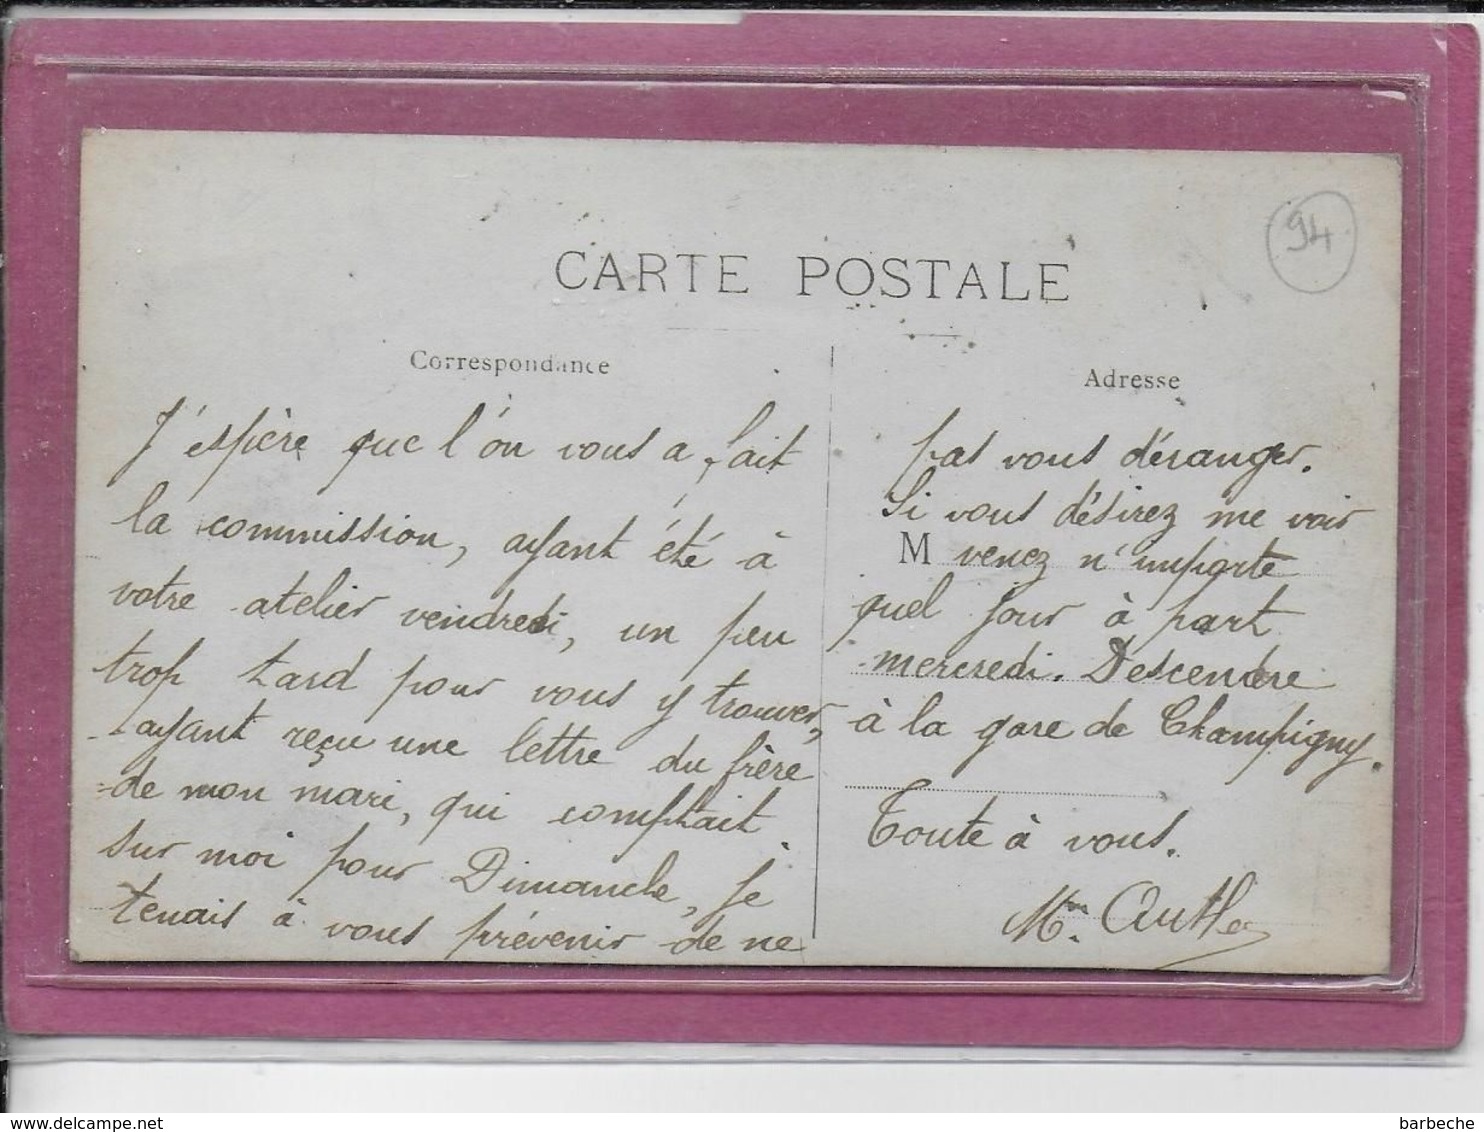 94
CARTE POSTALE
Correspondance
J'espère que l'on vous a fait
la commission, ayant été à
votre atelier vendredi, un peu
trop tard pour vous y trouver,
ayant reçu une lettre du frère
de mon mari, qui comptait
sur moi pour Dimanche, je
tenais à vous prévenir de ne
Adresse
pas vous déranger.
Si vous désirez me voir
M venez n'importe
quel jour à part
mercredi. Descendre
à la gare de Champigny.
Toute à vous.
Mm.
delcampe.net
barbeche